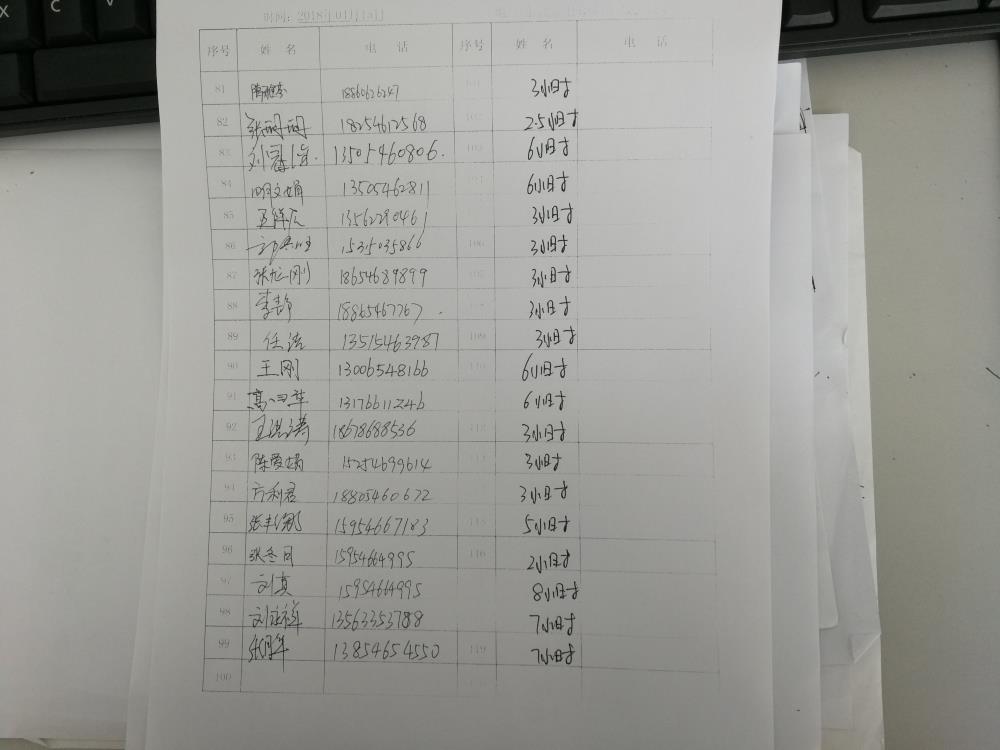 时间：2018年01月15日
序号 姓 名 电 话 序号 姓 名 电 话
81 18860626247 3小时
82 张丽丽 18254612568 102 2.5小时
83 13505460806. 103 6小时
84 明文娟 13505462811 6小时
85 13562290461 3小时
86 15315035866 106 3小时
87 张龙刚 18654689899 107 3小时
88 李静 18865467767 3小时
89 任洁 13515463987 109 3小时
90 王刚 13006548166 110 6小时
91 13176611246 6小时
92 王洪涛 18678688536 112 3小时
93 陈爱娟 15254699614 113 3小时
94 方利君 18805460672 3小时
95 15954667183 115 5小时
96 张冬月 15954664995 116 2小时
97 刘真 15954664995 8小时
98 刘正祥 13563353788 7小时
99 13854654550 119 7小时
100